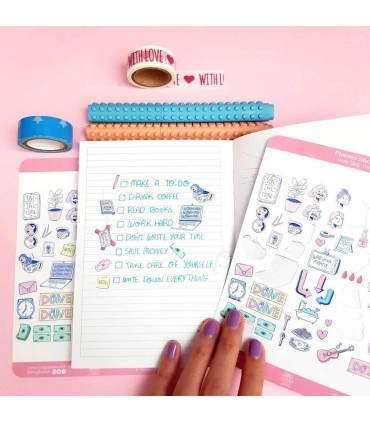 WITH LOVE
E ❤ WITH L
MAKE A TO-DO
DRINK COFFEE
READ BOOKS
WORK HARD
DON'T WRITE YOUR TIME
SAVE MONEY
TAKE CARE OF YOURSELF
WRITE DOWN EVERYTHING
Planner Sti
DONE
DONE
DONE
DONE
DONE